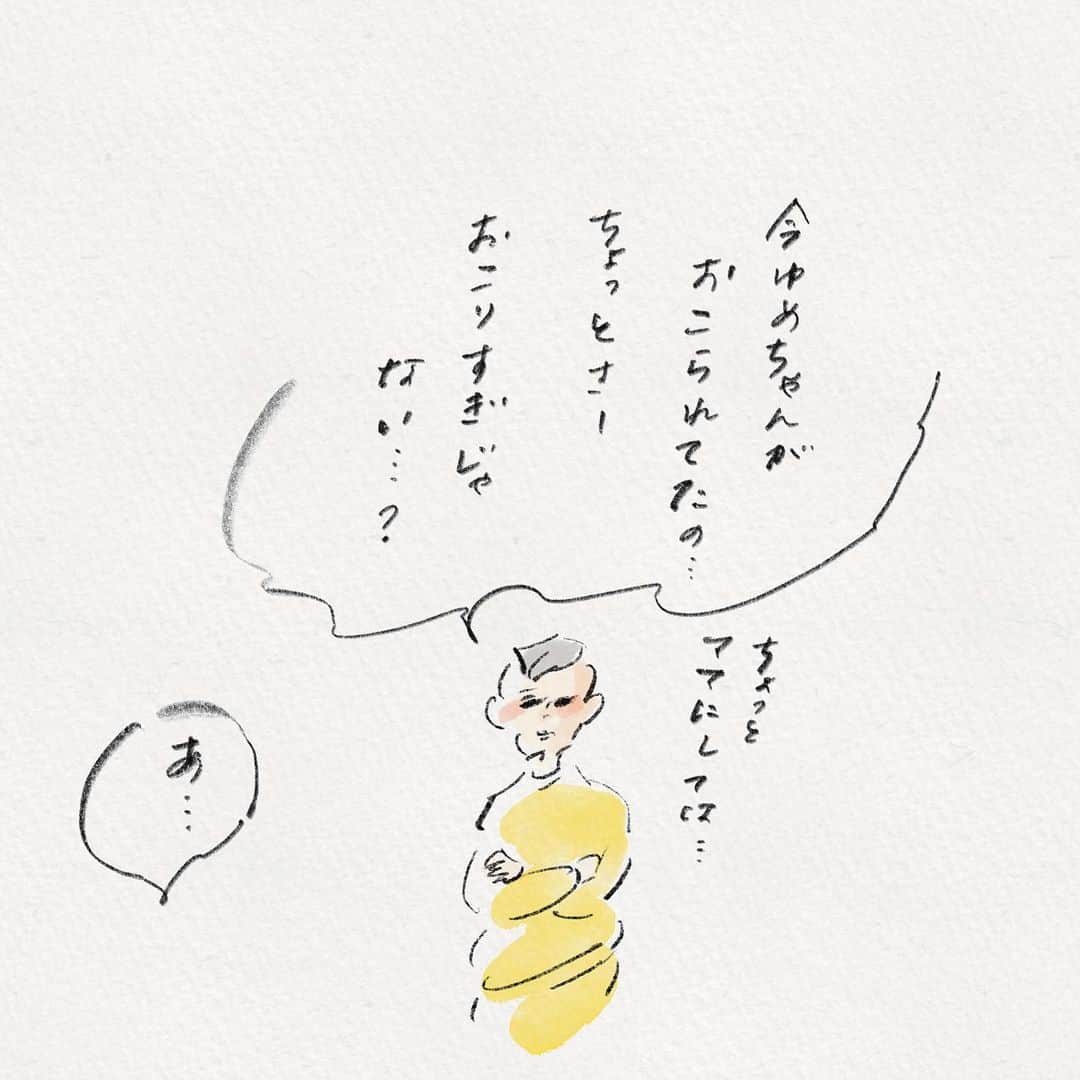 今ゆめちゃんが
おこられてたの…
ちょっとさー
おこりすぎじゃ
ない…?
ちょっと
ママにしては…
あ…